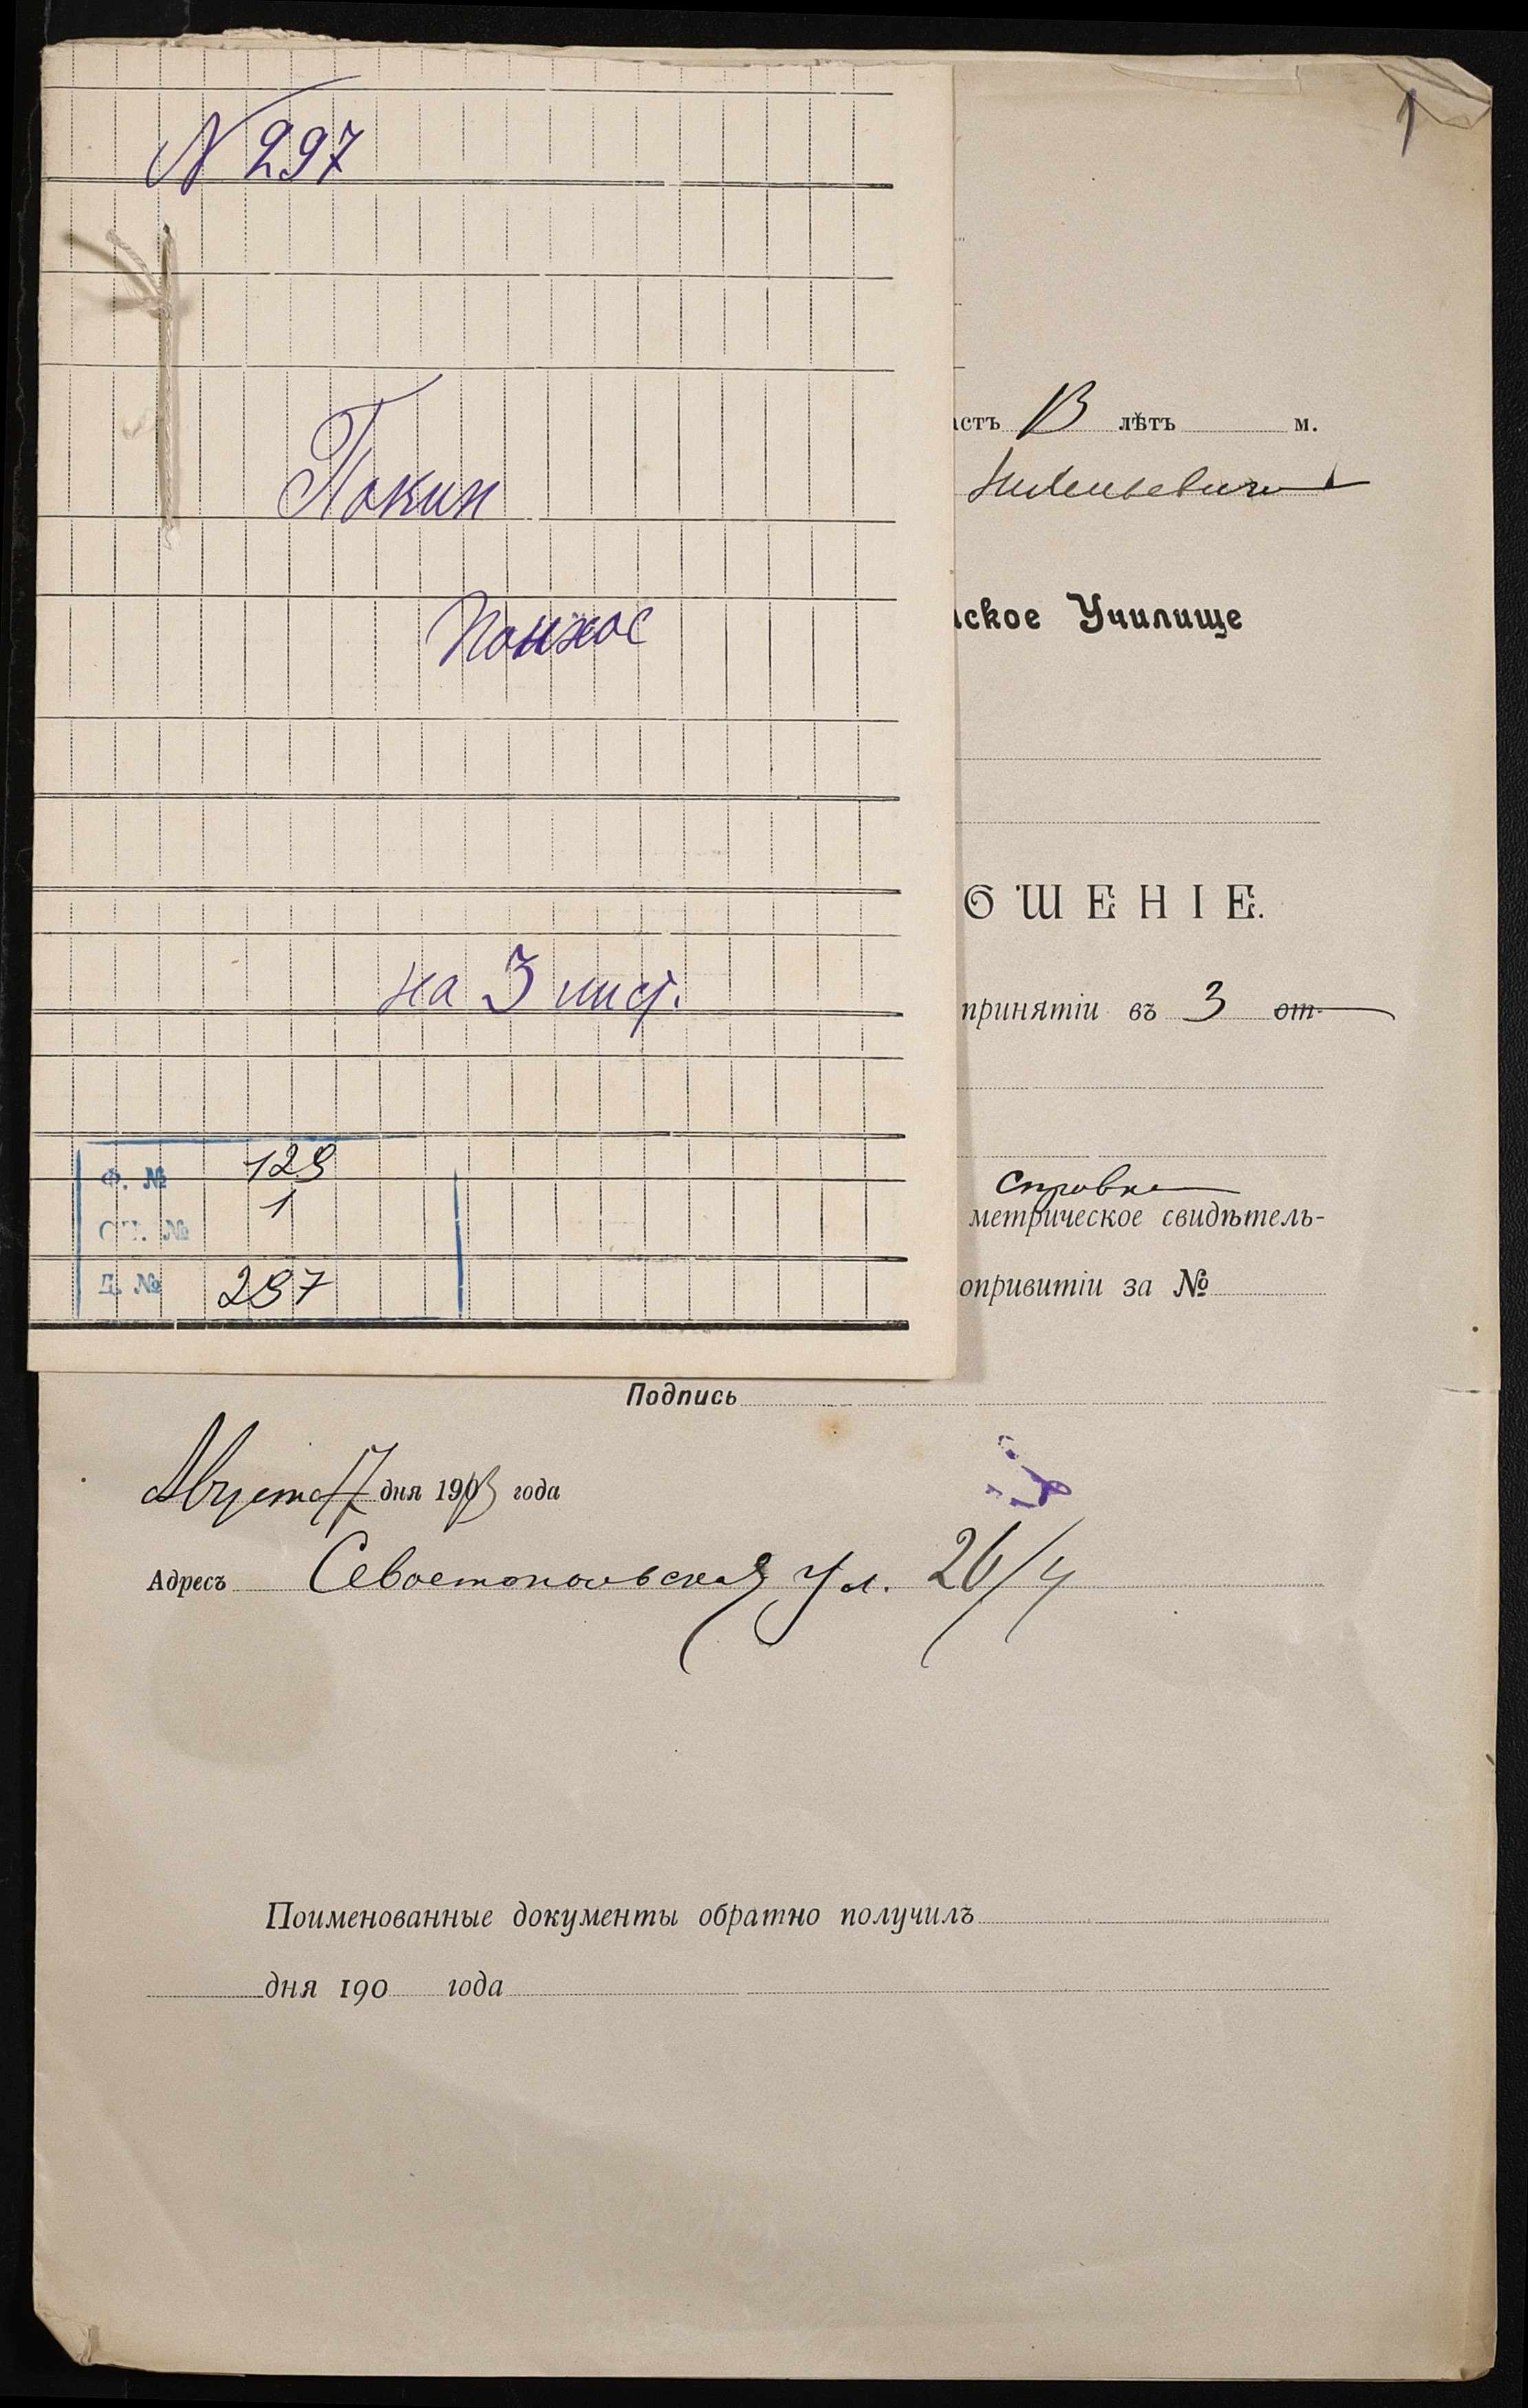 N 297
1
Покин
Понхос
на 3 лист.
Ф. № 129
ОП. № 1
Д. № 297
астъ 13 лѣтъ м.
ское Училище
ОШЕНІЕ.
принятіи въ 3 от-
справка
метрическое свидѣтель-
опривитіи за №
Подпись
Августа 17 дня 1903 года
Адресъ Севастопольская ул. 26/4
Поименованные документы обратно получилъ
дня 190 года